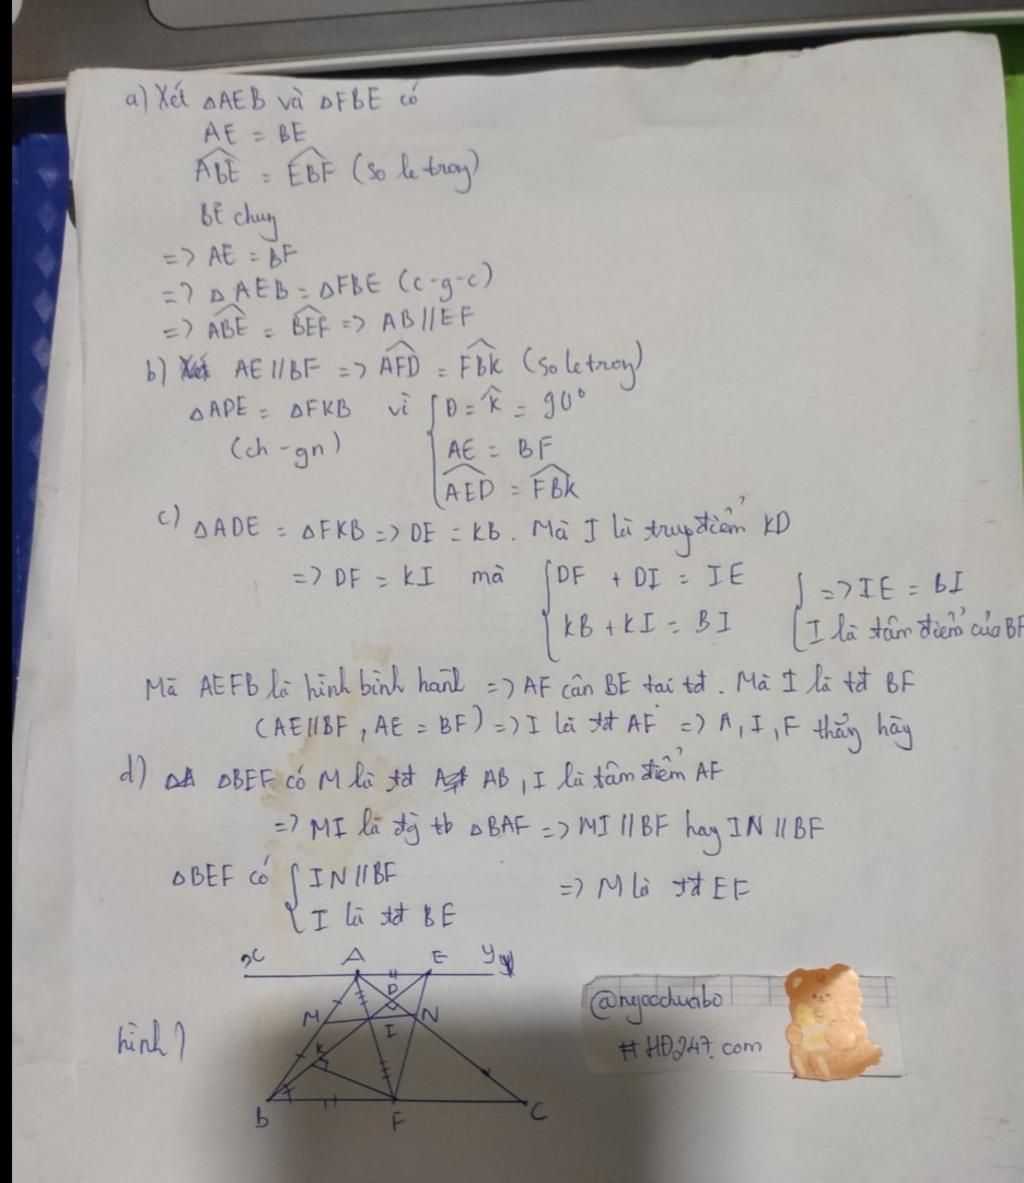 a) Xét ΔAEB và ΔFBE có
AE = BE
ABE = EBF (so le trong)
BE chung
=> AE = BF
=> ΔAEB = ΔFBE (c-g-c)
=> ABE = BEF => AB // EF
b) AE // BF => AFD = FBK (so le trong)
ΔADE = ΔFKB vì { D = K = 90°
(ch - gn) AE = BF
AED = FBK
c) ΔADE = ΔFKB => DE = KB. Mà I là trung điểm KD
=> DF = KI mà { DF + DI = IE } => IE = BI
KB + KI = BI { I là tâm điểm của BF
Mã AEFB là hình bình hành => AF cân BE tai tđ. Mà I là tđ BF
(AE // BF, AE = BF) => I là tđ AF => A, I, F thẳng hàng
d) ΔBEF có M là tđ AB, I là tâm điểm AF
=> MI là đg tb ΔBAF => MI // BF hay IN // BF
ΔBEF có { IN // BF => M là tđ EF
I là tđ BE
x A E y
D
M N
I
K
hình
B F C
@ngocchuabo
#HD247.com